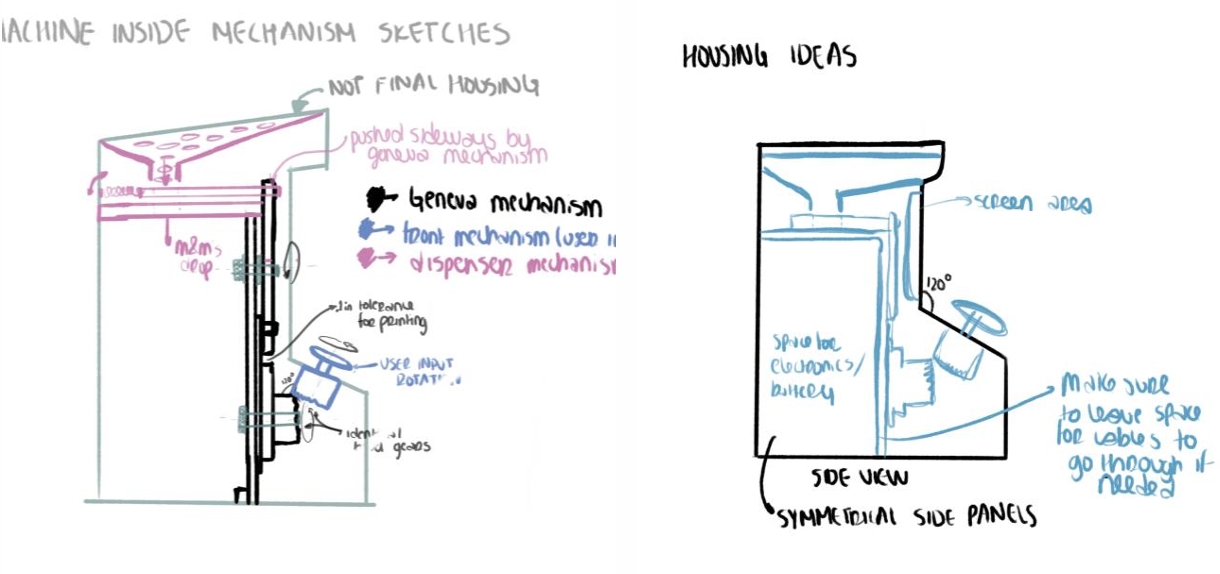 MACHINE INSIDE MECHANISM SKETCHES
NOT FINAL HOUSING
pushed sideways by
geneva mechanism
Geneva mechanism
front mechanism (user i
dispenser mechanis
m&ms
drop
tolerance
for printing
USER INPUT
120°
gears
HOUSING IDEAS
screen area
120°
space for
electronics/
battery
Make sure
to leave space
for cables to
go through if
needed
SIDE VIEW
SYMMETRICAL SIDE PANELS